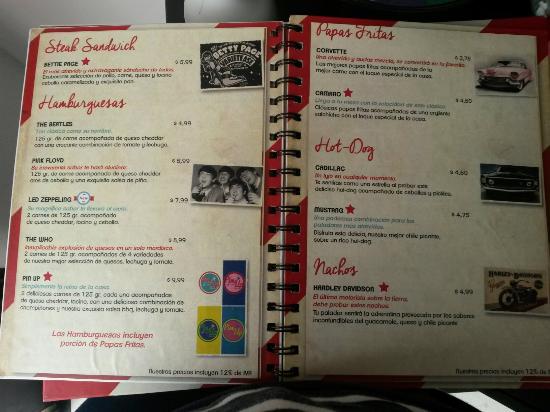 Steak Sandwich
BETTIE PAGE $ 6,99
El más atrevido y extravagante sánduche de todos.
Exuberante selección de pollo, carne, queso y tocino
cebolla caramelizada y exquisito pan.
BETTY PAGE
Hamburguesas
THE BEATLES $ 4,99
Tan clásica como su nombre.
125 gr. de carne acompañada de queso cheddar
con una crocante combinación de tomate y lechuga.
PINK FLOYD $ 5,99
125 gr. de carne acompañada de queso cheddar
aros de cebolla y una exquisita salsa de piña.
LED ZEPPELING $ 7,99
Su magnífico sabor te llevará al cielo.
2 carnes de 125 gr. acompañada
de queso cheddar, tocino y cebolla.
THE WHO $ 8,99
Inexplicable explosión de quesos en un solo mordisco.
2 carnes de 125 gr. acompañadas de 4 variedades
de nuestra mejor selección de quesos, lechuga y tomate.
PIN UP $ 9,99
Simplemente la reina de la casa.
2 deliciosas carnes de 125 gr. cada una acompañadas
de queso cheddar, tocino, con una deliciosa combinación
de champiñones y una exquisita salsa BBQ, lechuga y tomate.
Las Hamburguesas incluyen
porción de Papas Fritas.
Nuestros precios incluyen 12% de IVA
Papas Fritas
CORVETTE $ 3,75
Una atrevida y audaz mezcla, se convertirá en tu favorita.
Las mejores papas fritas acompañadas de la
mejor carne con el toque especial de la casa.
CAMARO $ 4,50
Llega a tu mesa con la velocidad de este clásico.
Clásicas papas fritas acompañadas de una crujiente
salchicha con el toque especial de la casa.
Hot-Dog
CADILLAC $ 4,50
Un lujo en cualquier momento.
Te sentirás como una estrella al probar este
delicioso hot-dog acompañado de cebollas y pickles.
MUSTANG $ 4,75
Una poderosa combinación para los
paladares más atrevidos.
Disfruta esta delicia, nuestro mejor chile picante,
sobre un rico hot-dog.
Nachos
HARDLEY DAVIDSON $ 4,99
El último motorista sobre la tierra,
debe probar estos nachos.
Tu paladar sentirá la adrenalina provocada por los sabores
inconfundibles del guacamole, queso y chile picante
HARLEY-DAVIDSON
Nuestros precios incluyen 12% de